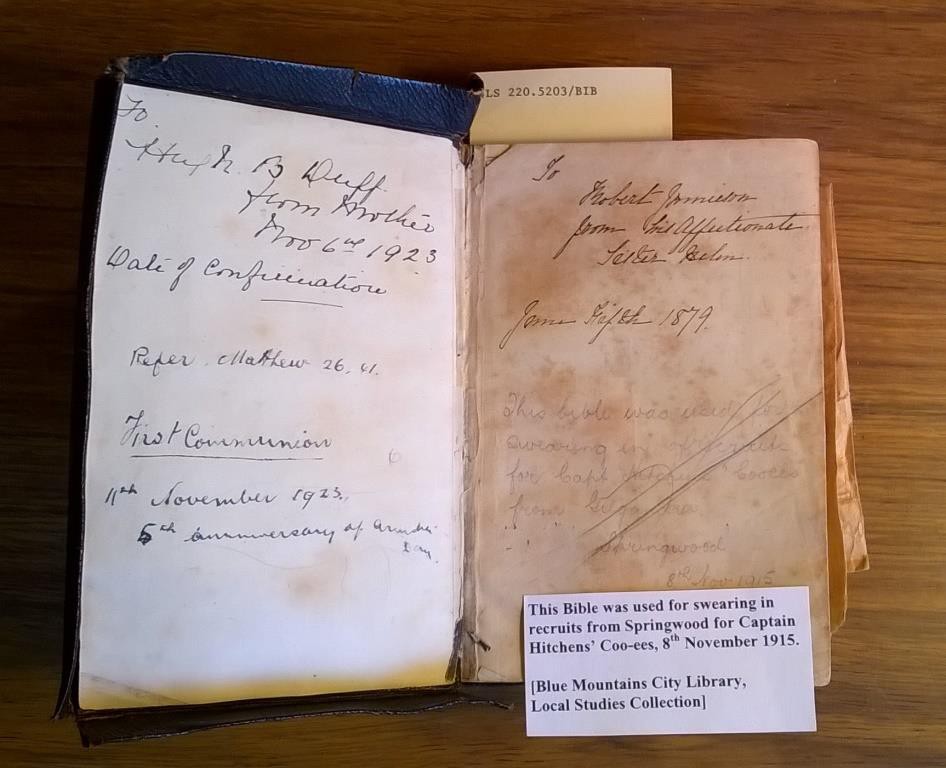 To
Hugh B Duff
from Mother
Nov 6th 1923
Date of Confirmation
Refer Matthew 26, 41.
First Communion
11th November 1923,
5th anniversary of
Day
LS 220.5203/BIB
To
Robert Jamieson
from his Affectionate
Sister Helen.
June Fifth 1879.
This bible was used for
swearing in of recruits
for Capt Cooees
from Gilgandra
Springwood
8th Nov 1915
This Bible was used for swearing in
recruits from Springwood for Captain
Hitchens’ Coo-ees, 8th November 1915.
[Blue Mountains City Library,
Local Studies Collection]